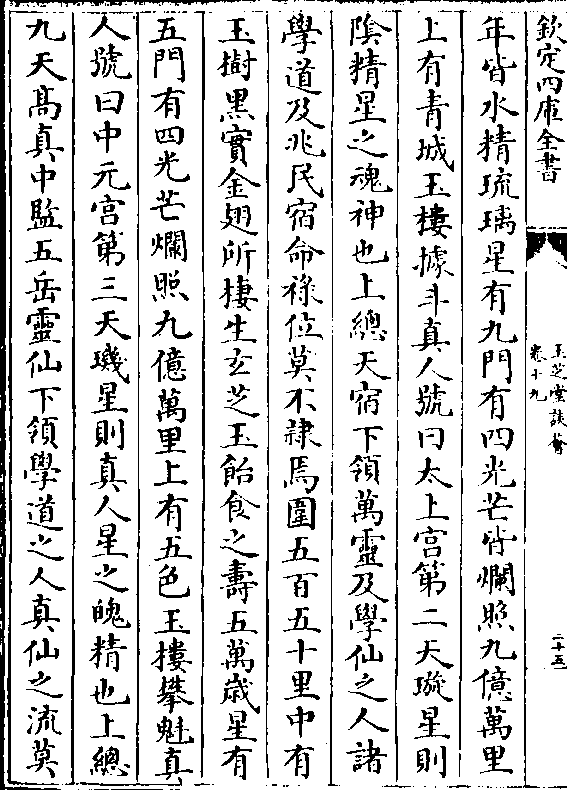 欽定四庫全書
玉芝堂談薈
卷十九
二十五
年皆水精琉璃星有九門有四光芒皆爛照九億萬里
上有青城玉樓據斗真人號曰太上宫第二天璇星則
隂精星之魂神也上總天宿下領萬靈及學仙之人諸
學道及兆民宿命祿位莫不𨽻焉圍五百五十里中有
玉樹黒實金翅所棲生玄芝玉飴食之壽五萬歳星有
五門有四光芒爛照九億萬里上有五色玉樓攀魁真
人號曰中元宫第三天璣星則真人星之魄精也上總
九天髙真中監五岳靈仙下領學道之人真仙之流莫